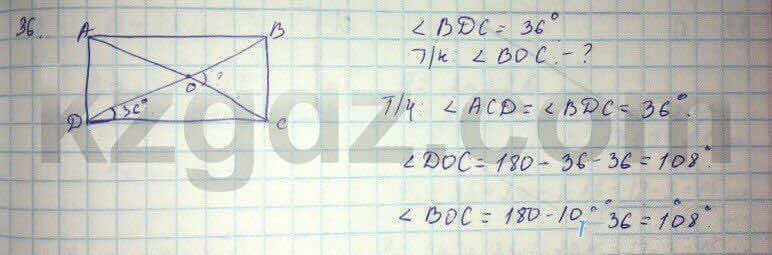 36.
A B
∠BDC = 36°
Т/к ∠BOC - ?
O ?
36°
D C
Т/ч ∠ACD = ∠BDC = 36°.
∠DOC = 180 - 36 - 36 = 108°.
∠BOC = 180 - 10 36 = 108°.
kzgdz.com